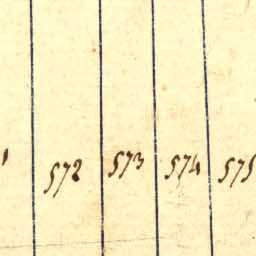 572 573 574 575